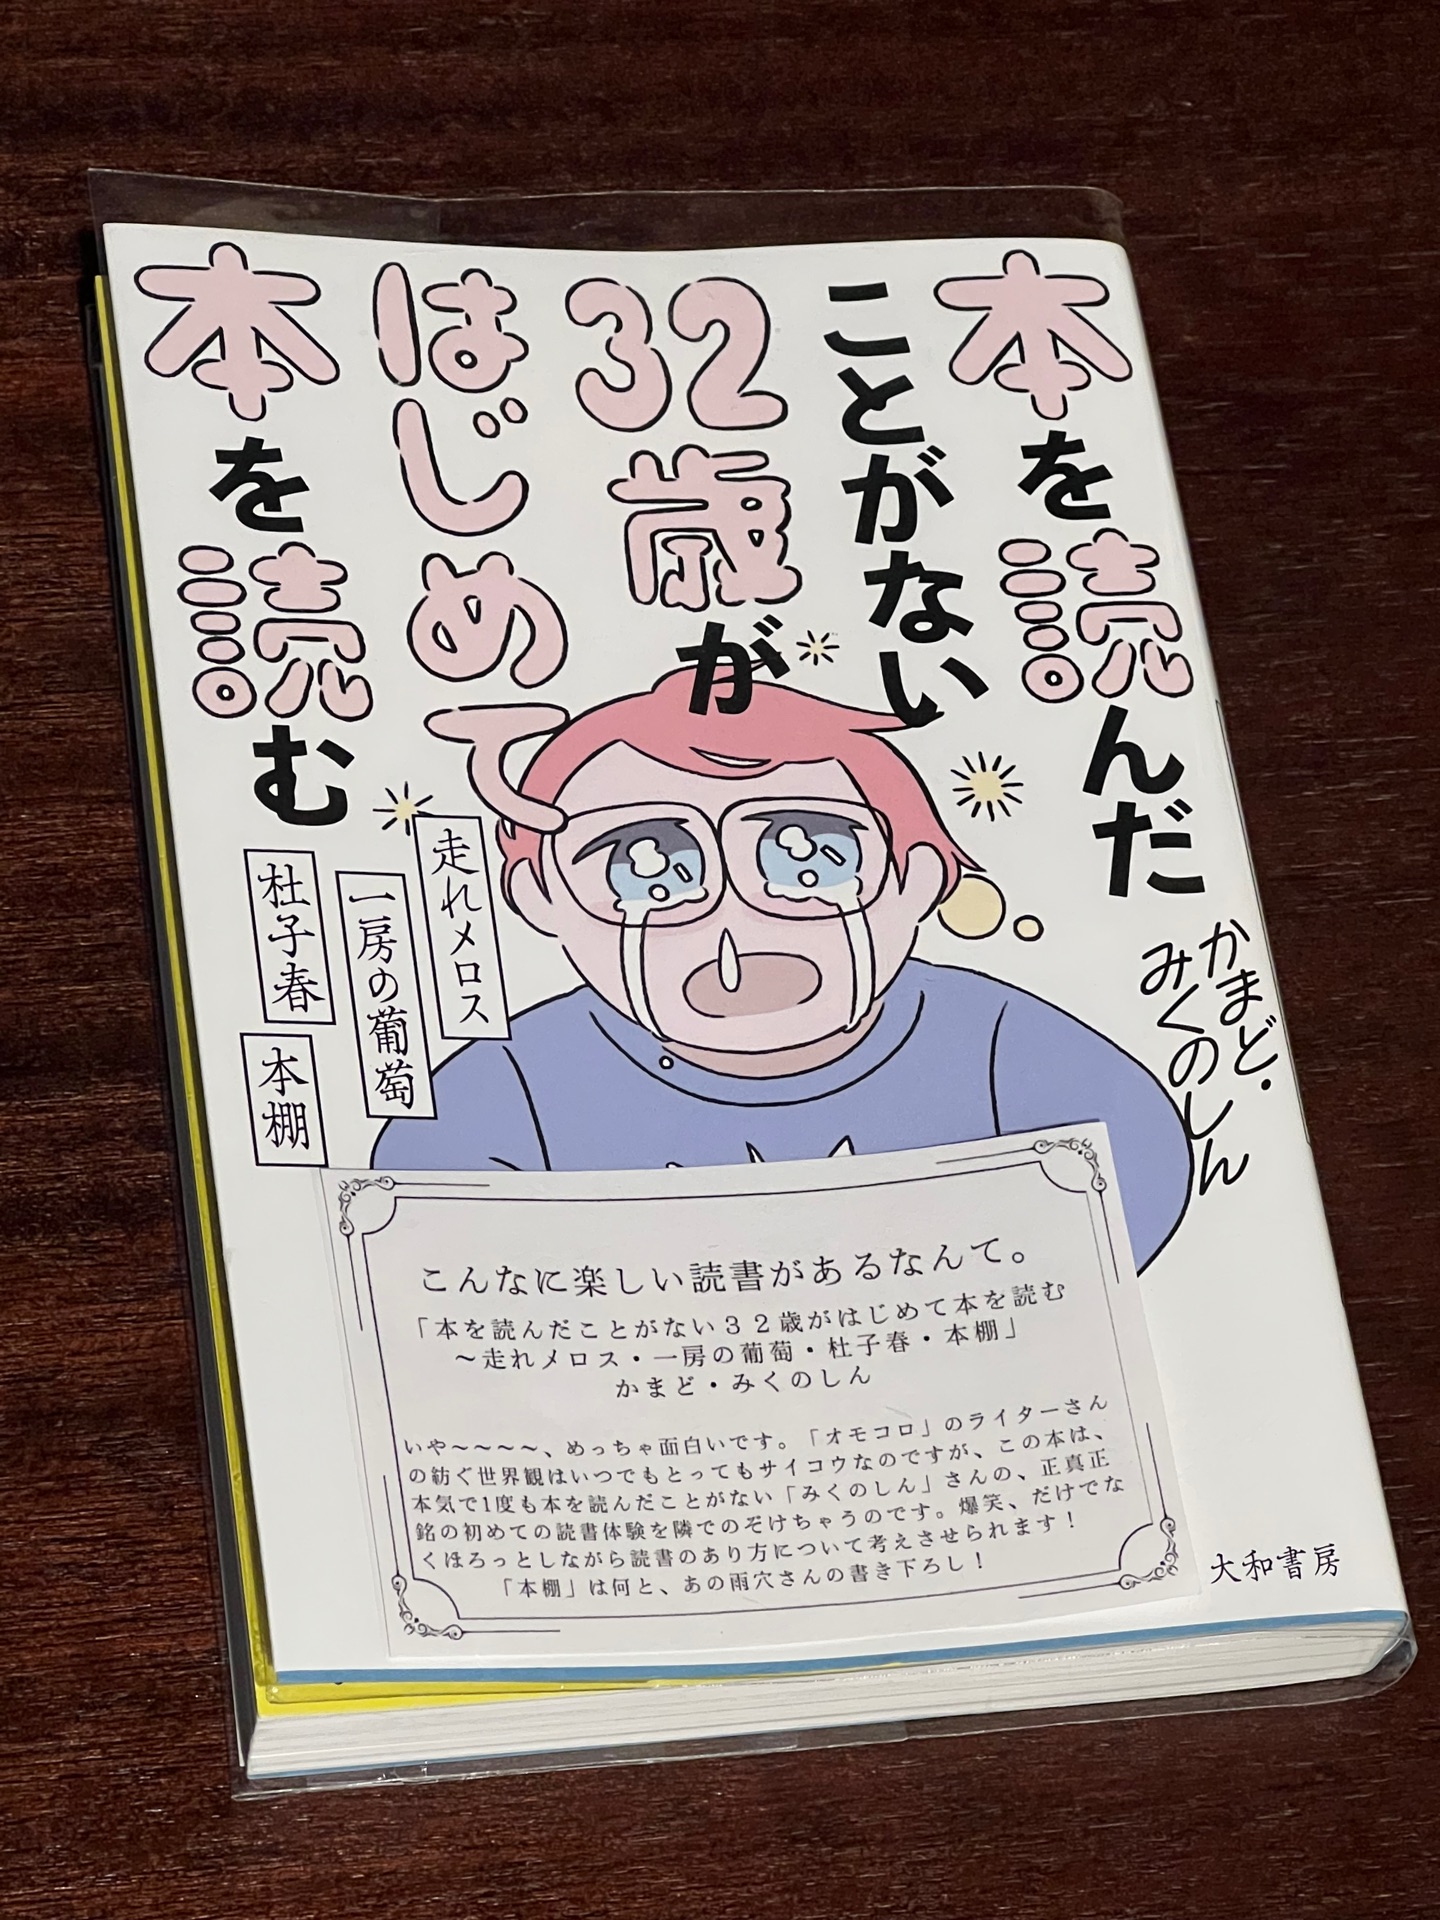 本を読んだ
ことがない
32歳が
はじめて
本を読む
かまど・
みくのしん
走れメロス
一房の葡萄
杜子春
本棚
こんなに楽しい読書があるなんて。
「本を読んだことがない３２歳がはじめて本を読む
～走れメロス・一房の葡萄・杜子春・本棚」
かまど・みくのしん
いや～～～～、めっちゃ面白いです。「オモコロ」のライターさん
の紡ぐ世界観はいつでもとってもサイコウなのですが、この本は、
本気で1度も本を読んだことがない「みくのしん」さんの、正真正
銘の初めての読書体験を隣でのぞけちゃうのです。爆笑、だけでな
くほろっとしながら読書のあり方について考えさせられます！
「本棚」は何と、あの雨穴さんの書き下ろし！
大和書房